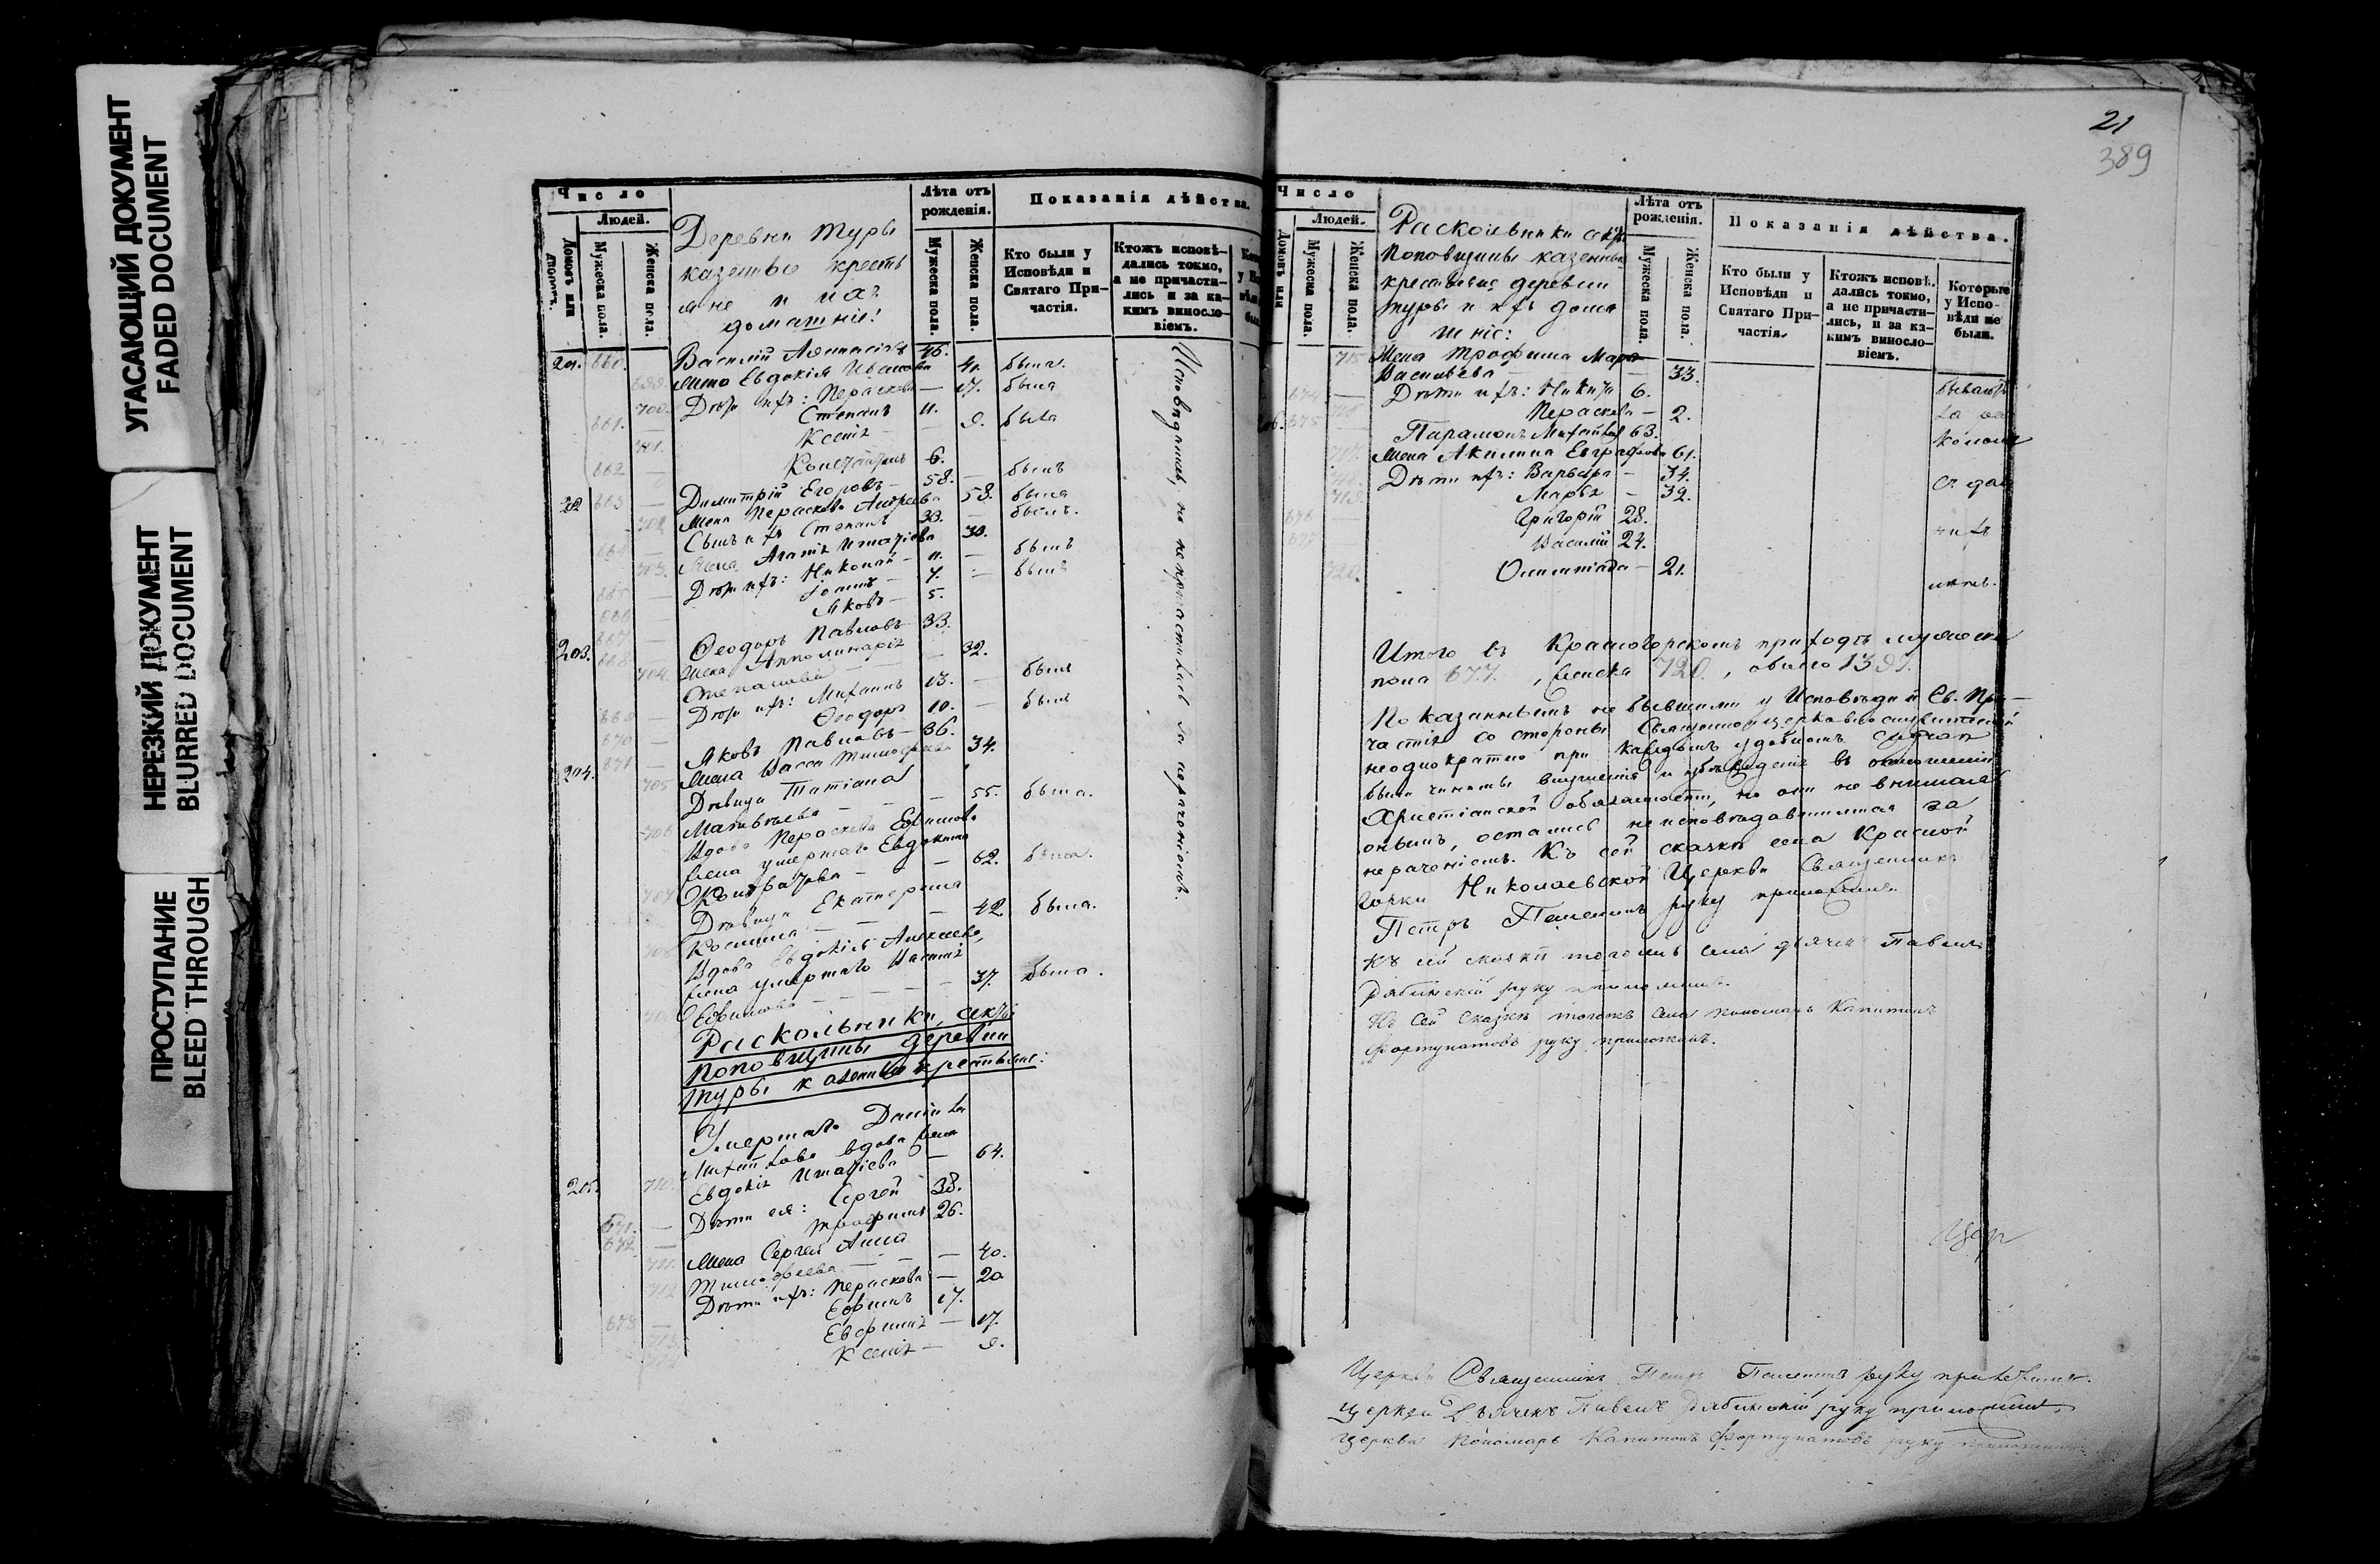 УГАСАЮЩИЙ ДОКУМЕНТ
FADED DOCUMENT
НЕРЕЗКИЙ ДОКУМЕНТ
BLURRED DOCUMENT
ПРОСТУПАНИЕ
BLEED THROUGH
Число
Людей.
Домовъ или дворовъ.
Мужеска пола.
Женска пола.
Деревни Туры
казенные кресть
яне и ихъ
домашніе:
Лѣта отъ
рожденія.
Мужеска пола.
Женска пола.
Показанія дѣйства.
Кто были у
Исповѣди и
Святаго При-
частія.
Ктожъ исповѣ-
дались токмо,
а не причасти-
лись и за ка-
кимъ виносло-
віемъ.
201. 660. Василій 46.
699. Евдокія Иванова 41. была.
700. Дѣти ихъ: Параскева — 17. была
661. Степанъ 11.
701. Ксенія — 9. была
662 — Константинъ 6.
202 663 — Димитрій Егоровъ — 58. — былъ
702 Жена Параскева Андреева 58. была
664 — Сынъ ихъ Степанъ 33. — былъ.
703. Жена Агапія Игнатіева 30.
665 — Дѣти ихъ: Николай — 11. — былъ
666 — Іоаннъ — 7. — былъ
667 — Яковъ — 5.
203. 668. Ѳеодоръ Павловъ — 33.
704. Жена Апполинарія
Степанова — 32.
669 — Дѣти ихъ: Михаилъ 13. — былъ
670 — Ѳеодоръ 10. — былъ
204. 671 — Яковъ Павловъ — 36.
705 Жена Васса Тимофеева 34.
Дѣвица Татіана
706 Матвѣева — — 55. была.
Вдова Параскева Ефимова
жена умершаго Евдокима
707 Кондратова — — 62. была.
Дѣвица Екатерина
708 Косьмина — — — 42. была.
Вдова Евдокія Алексѣева,
жена умершаго Василія
709 Ефимова — — — — 37. была.
Исповѣдались, но не причастились за нерачениемъ.
Раскольники секты
поповщины деревни
Туры казенные крестьяне:
Умершаго Даніила
Михайлова вдова жена
205. 710. Евдокія Игнатіева — 64.
671. — Дѣти ея: Сергей 38.
672 — Трофимъ 26.
Жена Сергея Анна
711. Тимофеева — — — 40.
712 Дѣти ихъ: Параскева — 20
673 — Ефимъ 17.
713 Евфимія — 17.
714 Ксенія — 9.
21
389
Число
Людей.
Домовъ или
Мужеска пола.
Женска пола.
Раскольники секты
поповщины казенные
крестьяне деревни
Туры и ихъ дома
шніе:
Лѣта отъ
рожденія.
Мужеска пола.
Женска пола.
Показанія дѣйства.
Кто были у
Исповѣди и
Святаго При-
частія.
Ктожъ исповѣ-
дались токмо,
а не причасти-
лись, и за ка-
кимъ виносло-
віемъ.
Которые
у Испо-
вѣди не
были.
715 Жена Трофима Марѳа
Васильева — 33.
674 — Дѣти ихъ: Никита 6.
716 Параскева — 2.
206. 675 — Парамонъ Михайловъ 63.
717. Жена Акилина Евграфова 61.
718. Дѣти ихъ: Варвара — 34.
719. Марѳа — 32.
676 — Григорій 28.
677 Василій 24.
720. Олимпіада — 21.
Итого въ Красногорскомъ приходѣ мужеска
пола 677. , женска 720. , обоего 1397.
Показаннымъ не бывшими у Исповѣди и Св. При-
частія со стороны Священноицерковнослужителей
неоднократно при каждомъ удобномъ случаѣ
были чинимы внушенія и убѣжденія въ отношеніи
Христіанской обязанности, но они не внимая
онымъ, остались неисповѣдавшимися за
нераченіемъ. Къ сей сказкѣ села Красной
Горки Николаевской Церкви Священникъ
Петръ руку приложилъ.
Къ сей сказкѣ тогожъ села дьячекъ Павелъ
руку приложилъ.
Къ сей сказкѣ тогожъ села пономарь Капитонъ
Фортунатовъ руку приложилъ.
Церкви Священникъ Петръ руку приложилъ.
Церкви Дьячекъ Павелъ руку приложилъ.
Церкви Пономарь Капитонъ Фортунатовъ руку приложилъ.